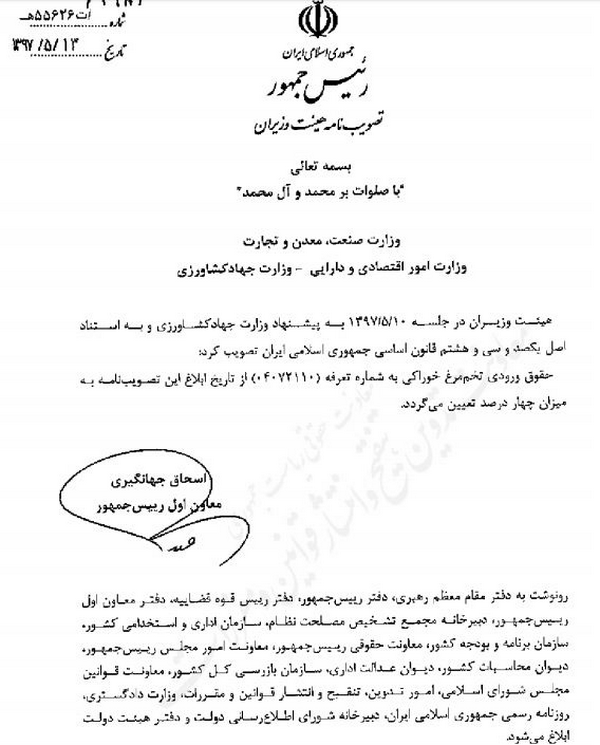 شماره ۵۵۶۲۶هـ
تاریخ ۱۳۹۷/۵/۱۳
جمهوری اسلامی ایران
رئیس جمهور
تصویب نامه هیئت وزیران
بسمه تعالی
"با صلوات بر محمد و آل محمد"
وزارت صنعت، معدن و تجارت
وزارت امور اقتصادی و دارایی - وزارت جهادکشاورزی
هیئت وزیران در جلسه ۱۳۹۷/۵/۱۰ به پیشنهاد وزارت جهادکشاورزی و به استناد
اصل یکصد و سی و هشتم قانون اساسی جمهوری اسلامی ایران تصویب کرد:
حقوق ورودی تخم‌مرغ خوراکی به شماره تعرفه (۰۴۰۷۲۱۱۰) از تاریخ ابلاغ این تصویب‌نامه به
میزان چهار درصد تعیین می‌گردد.
اسحاق جهانگیری
معاون اول رییس‌جمهور
رونوشت به دفتر مقام معظم رهبری، دفتر رییس‌جمهور، دفتر رییس قوه قضاییه، دفتر معاون اول
رییس‌جمهور، دبیرخانه مجمع تشخیص مصلحت نظام، سازمان اداری و استخدامی کشور،
سازمان برنامه و بودجه کشور، معاونت حقوقی رییس‌جمهور، معاونت امور مجلس رییس‌جمهور،
دیوان محاسبات کشور، دیوان عدالت اداری، سازمان بازرسی کل کشور، معاونت قوانین
مجلس شورای اسلامی، امور تدوین، تنقیح و انتشار قوانین و مقررات، وزارت دادگستری،
روزنامه رسمی جمهوری اسلامی ایران، دبیرخانه شورای اطلاع‌رسانی دولت و دفتر هیئت دولت
ابلاغ می‌شود.